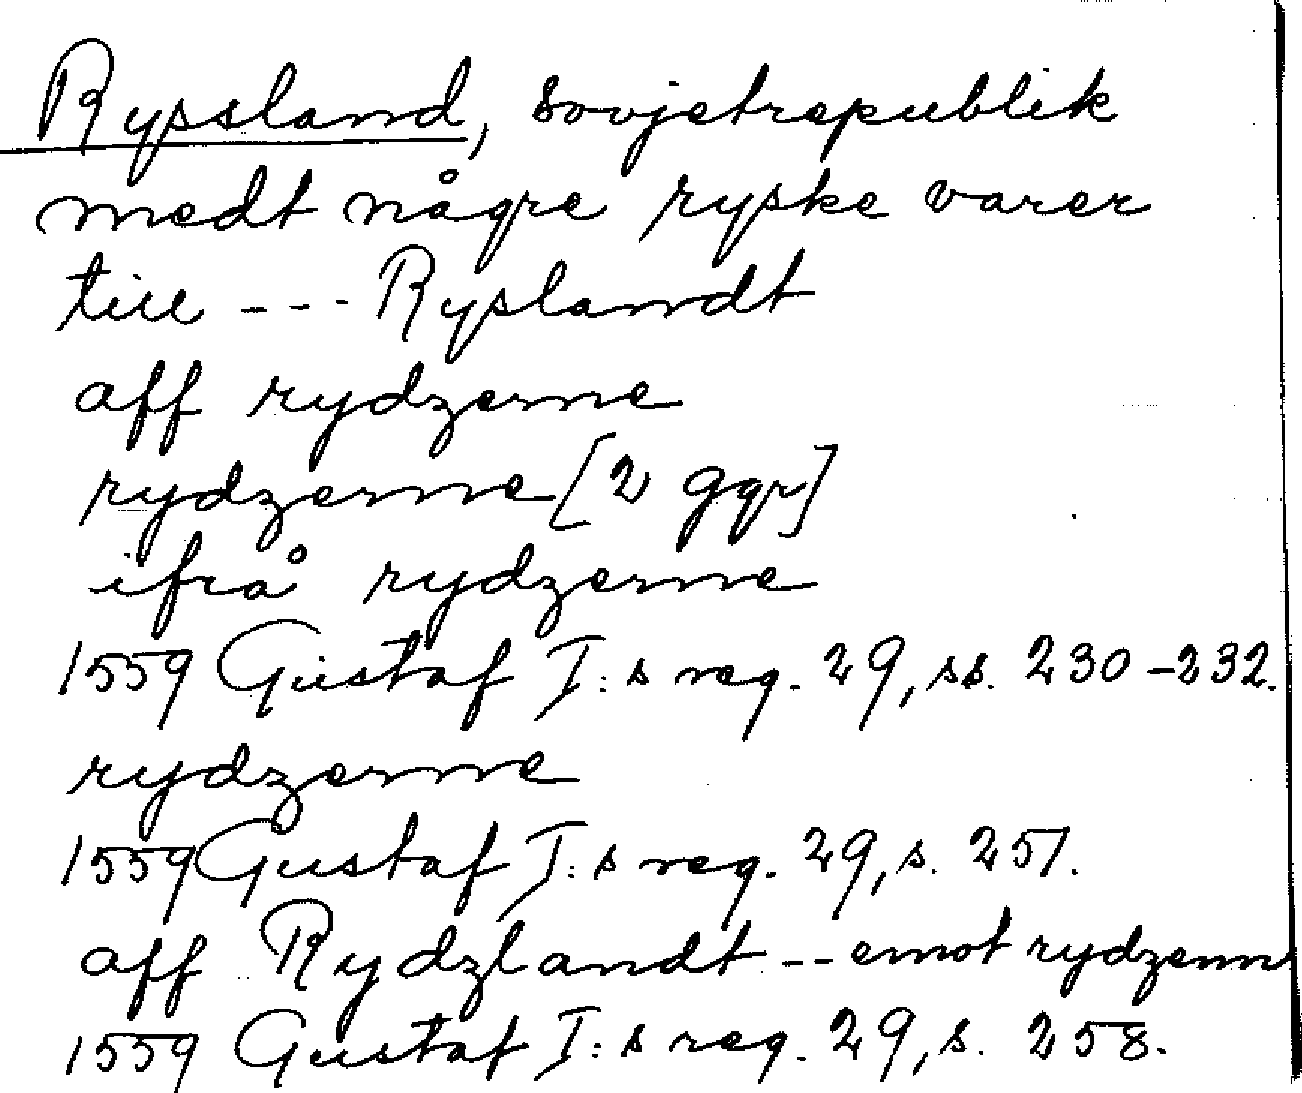 Ryssland, sovjetrepublik
medt någre ryske varer
till --- Ryslandt
aff rydzerne
rydzerne [2 ggr]
ifrå rydzerne
1559 Gustaf I:s reg. 29, ss. 230-232.
rydzerne
1559 Gustaf I:s reg. 29, s. 251.
aff Rydzlandt -- emot rydzerne
1559 Gustaf I:s reg. 29, s. 258.